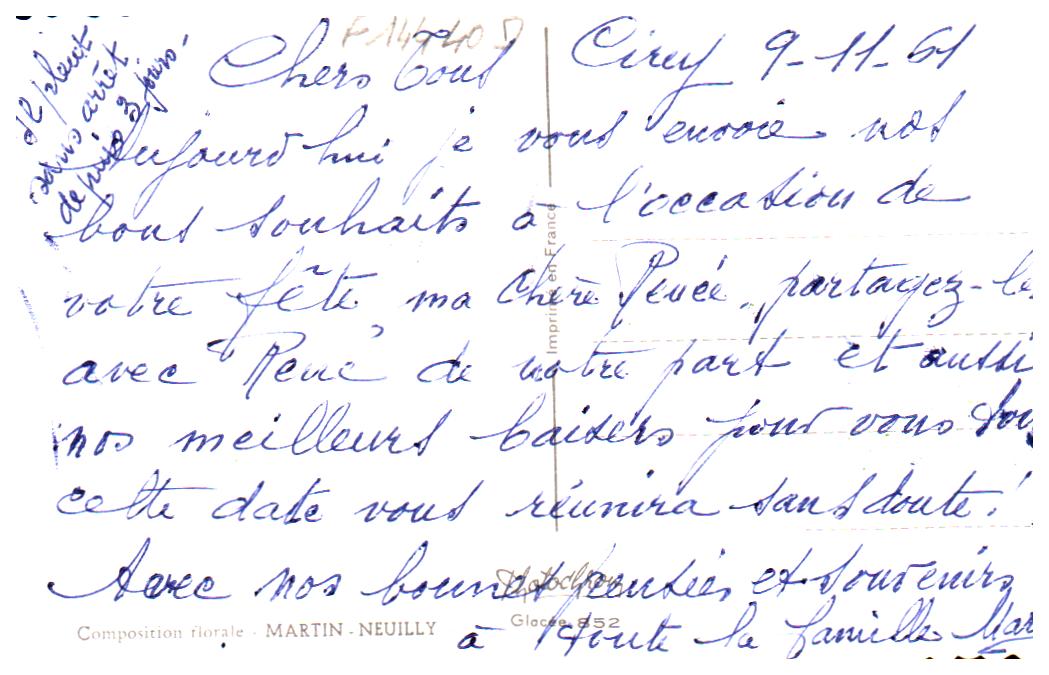 F 1440 D
Il pleut
sans arrêt
depuis 3 jours.
Cirey 9-11-61
Chers Tous
Aujourd hui je vous envoie nos
bons souhaits à l'occasion de
votre fête ma chère Renée, partagez-les
avec René de notre part et aussi
nos meilleurs baisers pour vous tous
cette date vous réunira sans doute!
Avec nos bonnes pensées et souvenirs
à toute la famille Mar
Imprimé en France
Photochrom
Glacée 852
Composition florale - MARTIN - NEUILLY